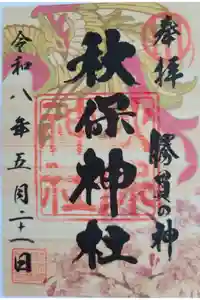 奉拝
勝負の神
秋保神社
令和八年五月二十一日